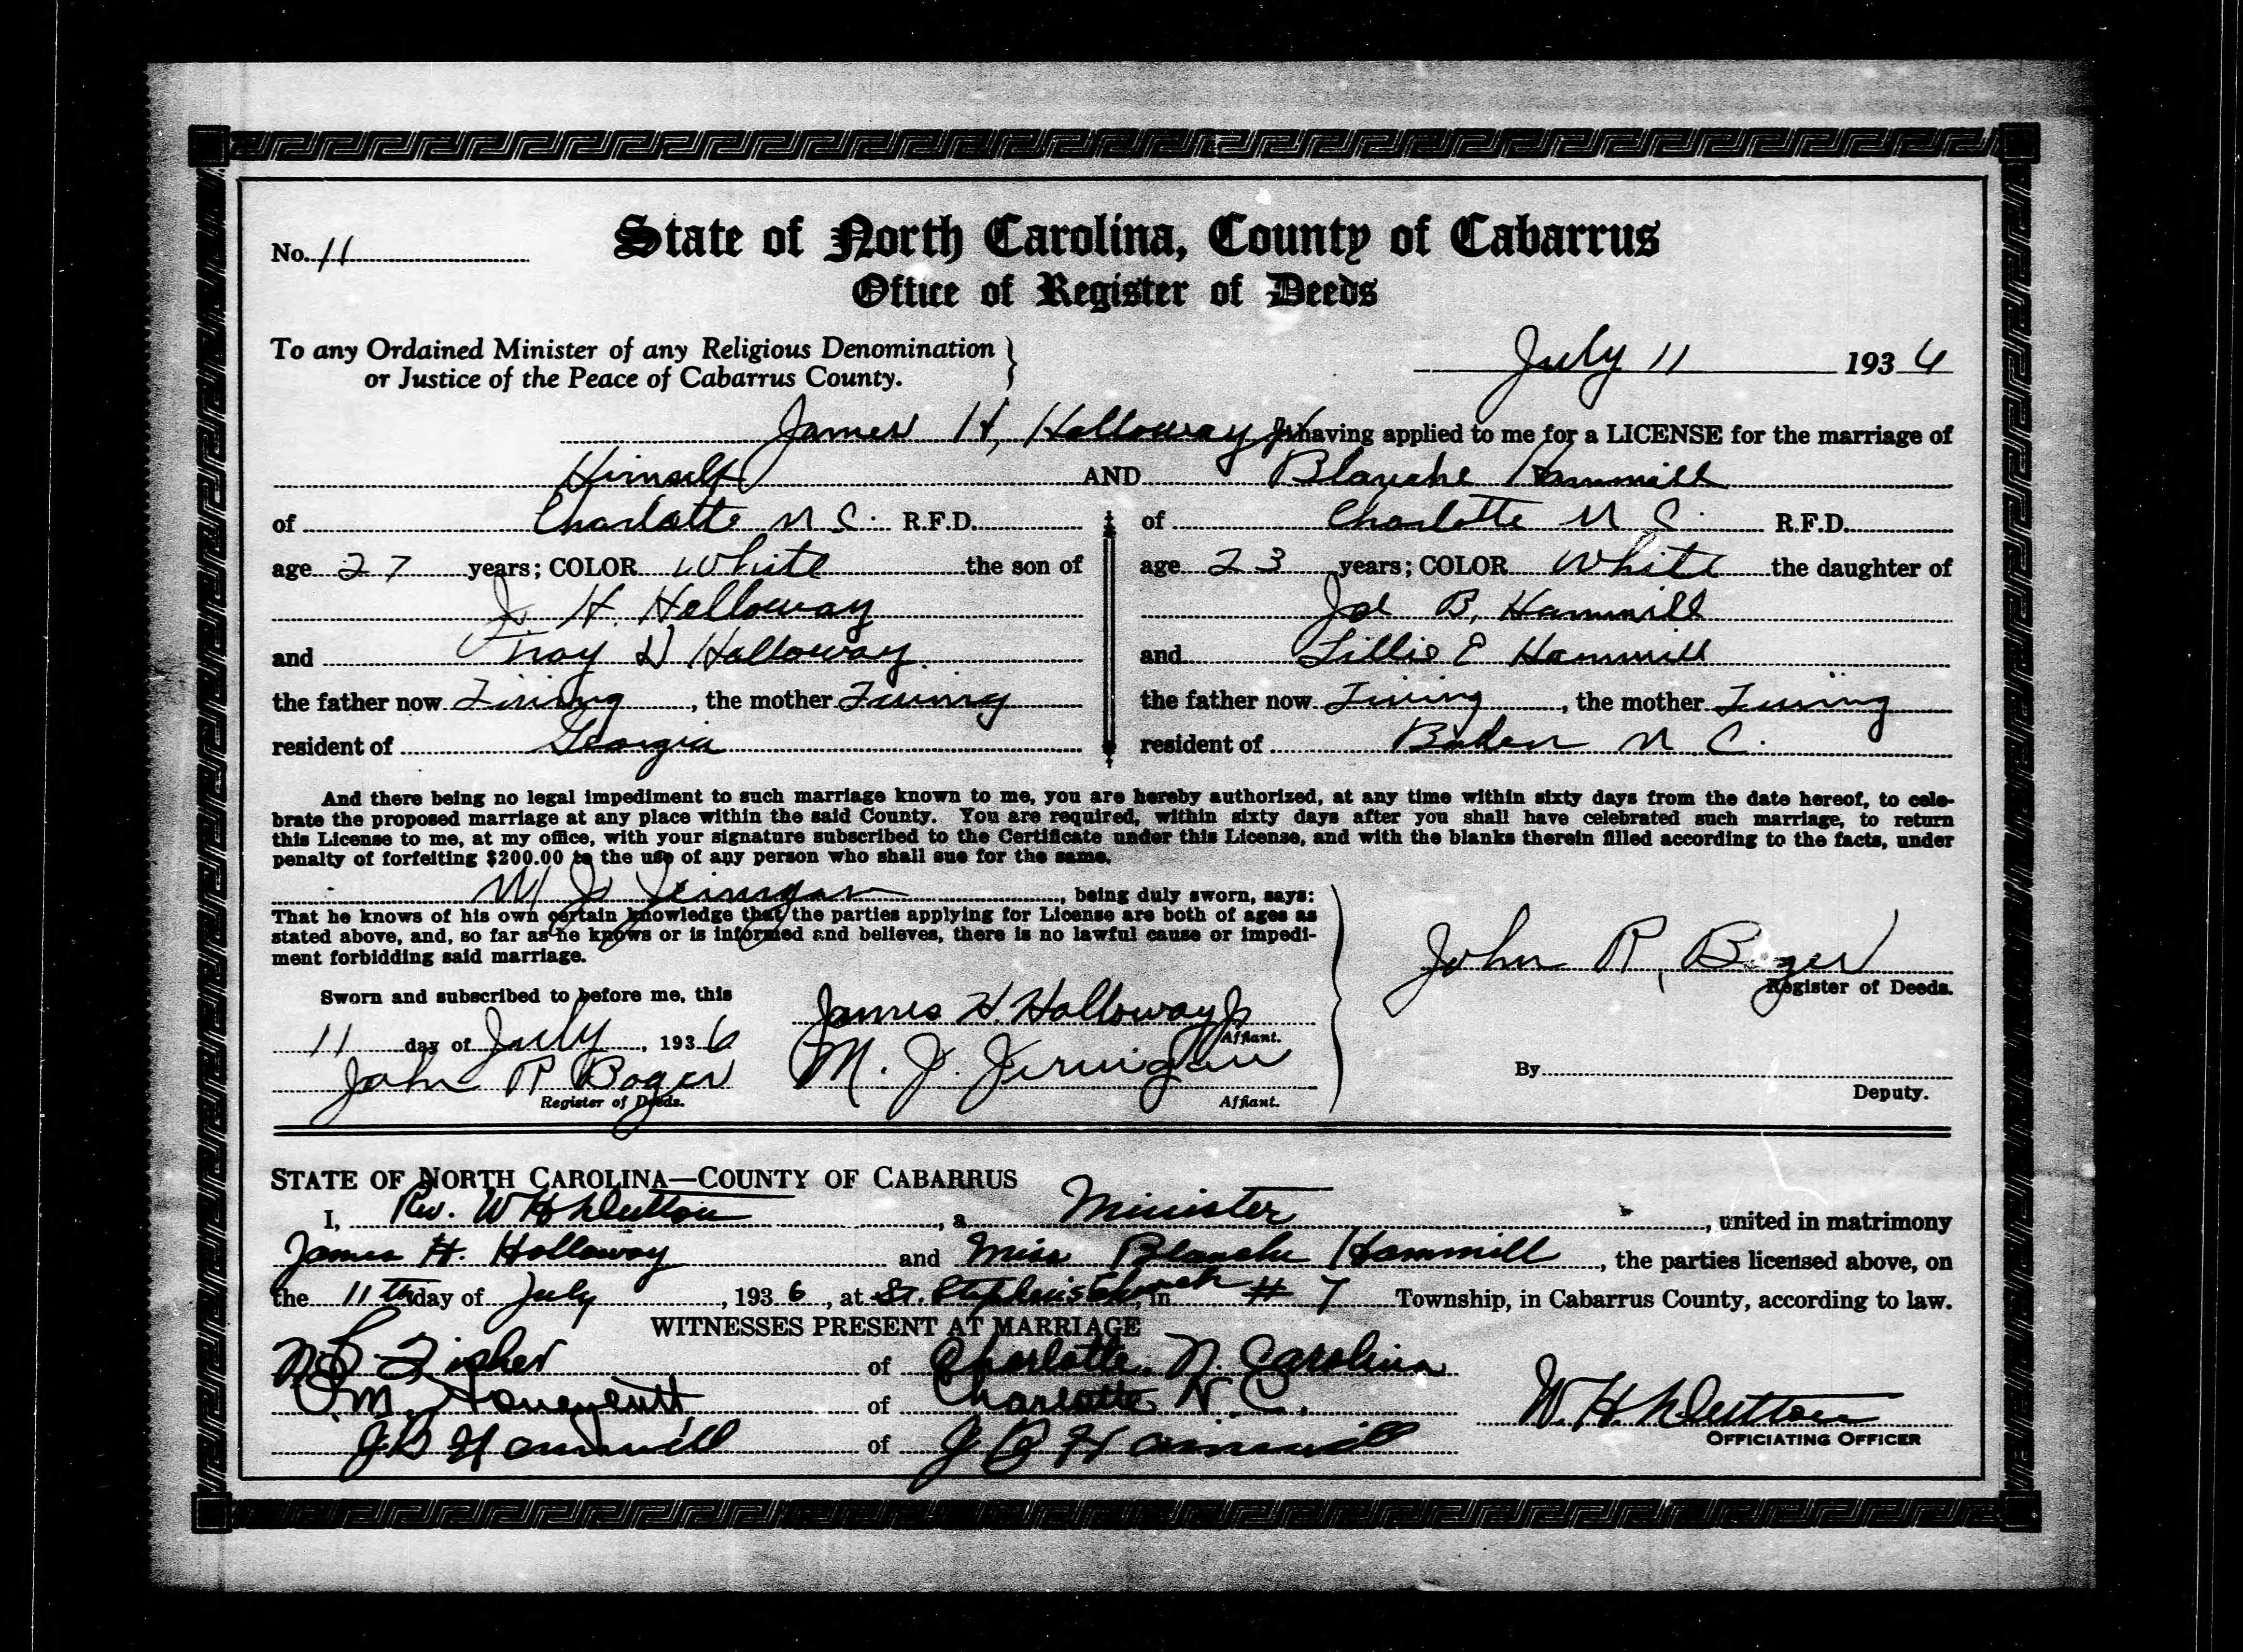 No. 11
State of North Carolina, County of Cabarrus
Office of Register of Deeds
To any Ordained Minister of any Religious Denomination
or Justice of the Peace of Cabarrus County.
July 11 1936
James H. Holloway Jr having applied to me for a LICENSE for the marriage of
Himself AND Blanche Hammill
of Charlotte N C. R.F.D. of Charlotte N C. R.F.D.
age 27 years; COLOR White the son of age 23 years; COLOR White the daughter of
J. H. Holloway Joe B. Hammill
and Troy D Holloway and Lillie E Hammill
the father now Living, the mother Living the father now Living, the mother Living
resident of Georgia resident of Baden N C.
And there being no legal impediment to such marriage known to me, you are hereby authorized, at any time within sixty days from the date hereof, to cele-
brate the proposed marriage at any place within the said County. You are required, within sixty days after you shall have celebrated such marriage, to return
this License to me, at my office, with your signature subscribed to the Certificate under this License, and with the blanks therein filled according to the facts, under
penalty of forfeiting $200.00 to the use of any person who shall sue for the same.
M J Jernigan, being duly sworn, says:
That he knows of his own certain knowledge that the parties applying for License are both of ages as
stated above, and, so far as he knows or is informed and believes, there is no lawful cause or impedi-
ment forbidding said marriage.
John R. Boger
Register of Deeds.
Sworn and subscribed to before me, this
James H. Holloway Jr
Affiant.
11 day of July, 1936
John R Boger
Register of Deeds.
M. J. Jernigan
Affiant.
By
Deputy.
STATE OF NORTH CAROLINA—COUNTY OF CABARRUS
I, Rev. W H Dutton, a Minister, united in matrimony
James H. Holloway and Miss Blanche Hammill, the parties licensed above, on
the 11th day of July, 1936, at St. Stephens Church, in # 7 Township, in Cabarrus County, according to law.
WITNESSES PRESENT AT MARRIAGE
Fisher of Charlotte, N. Carolina
M. Honeycutt of Charlotte N. C.
W. H. Dutton
OFFICIATING OFFICER
J B Hammill of J B Hammill